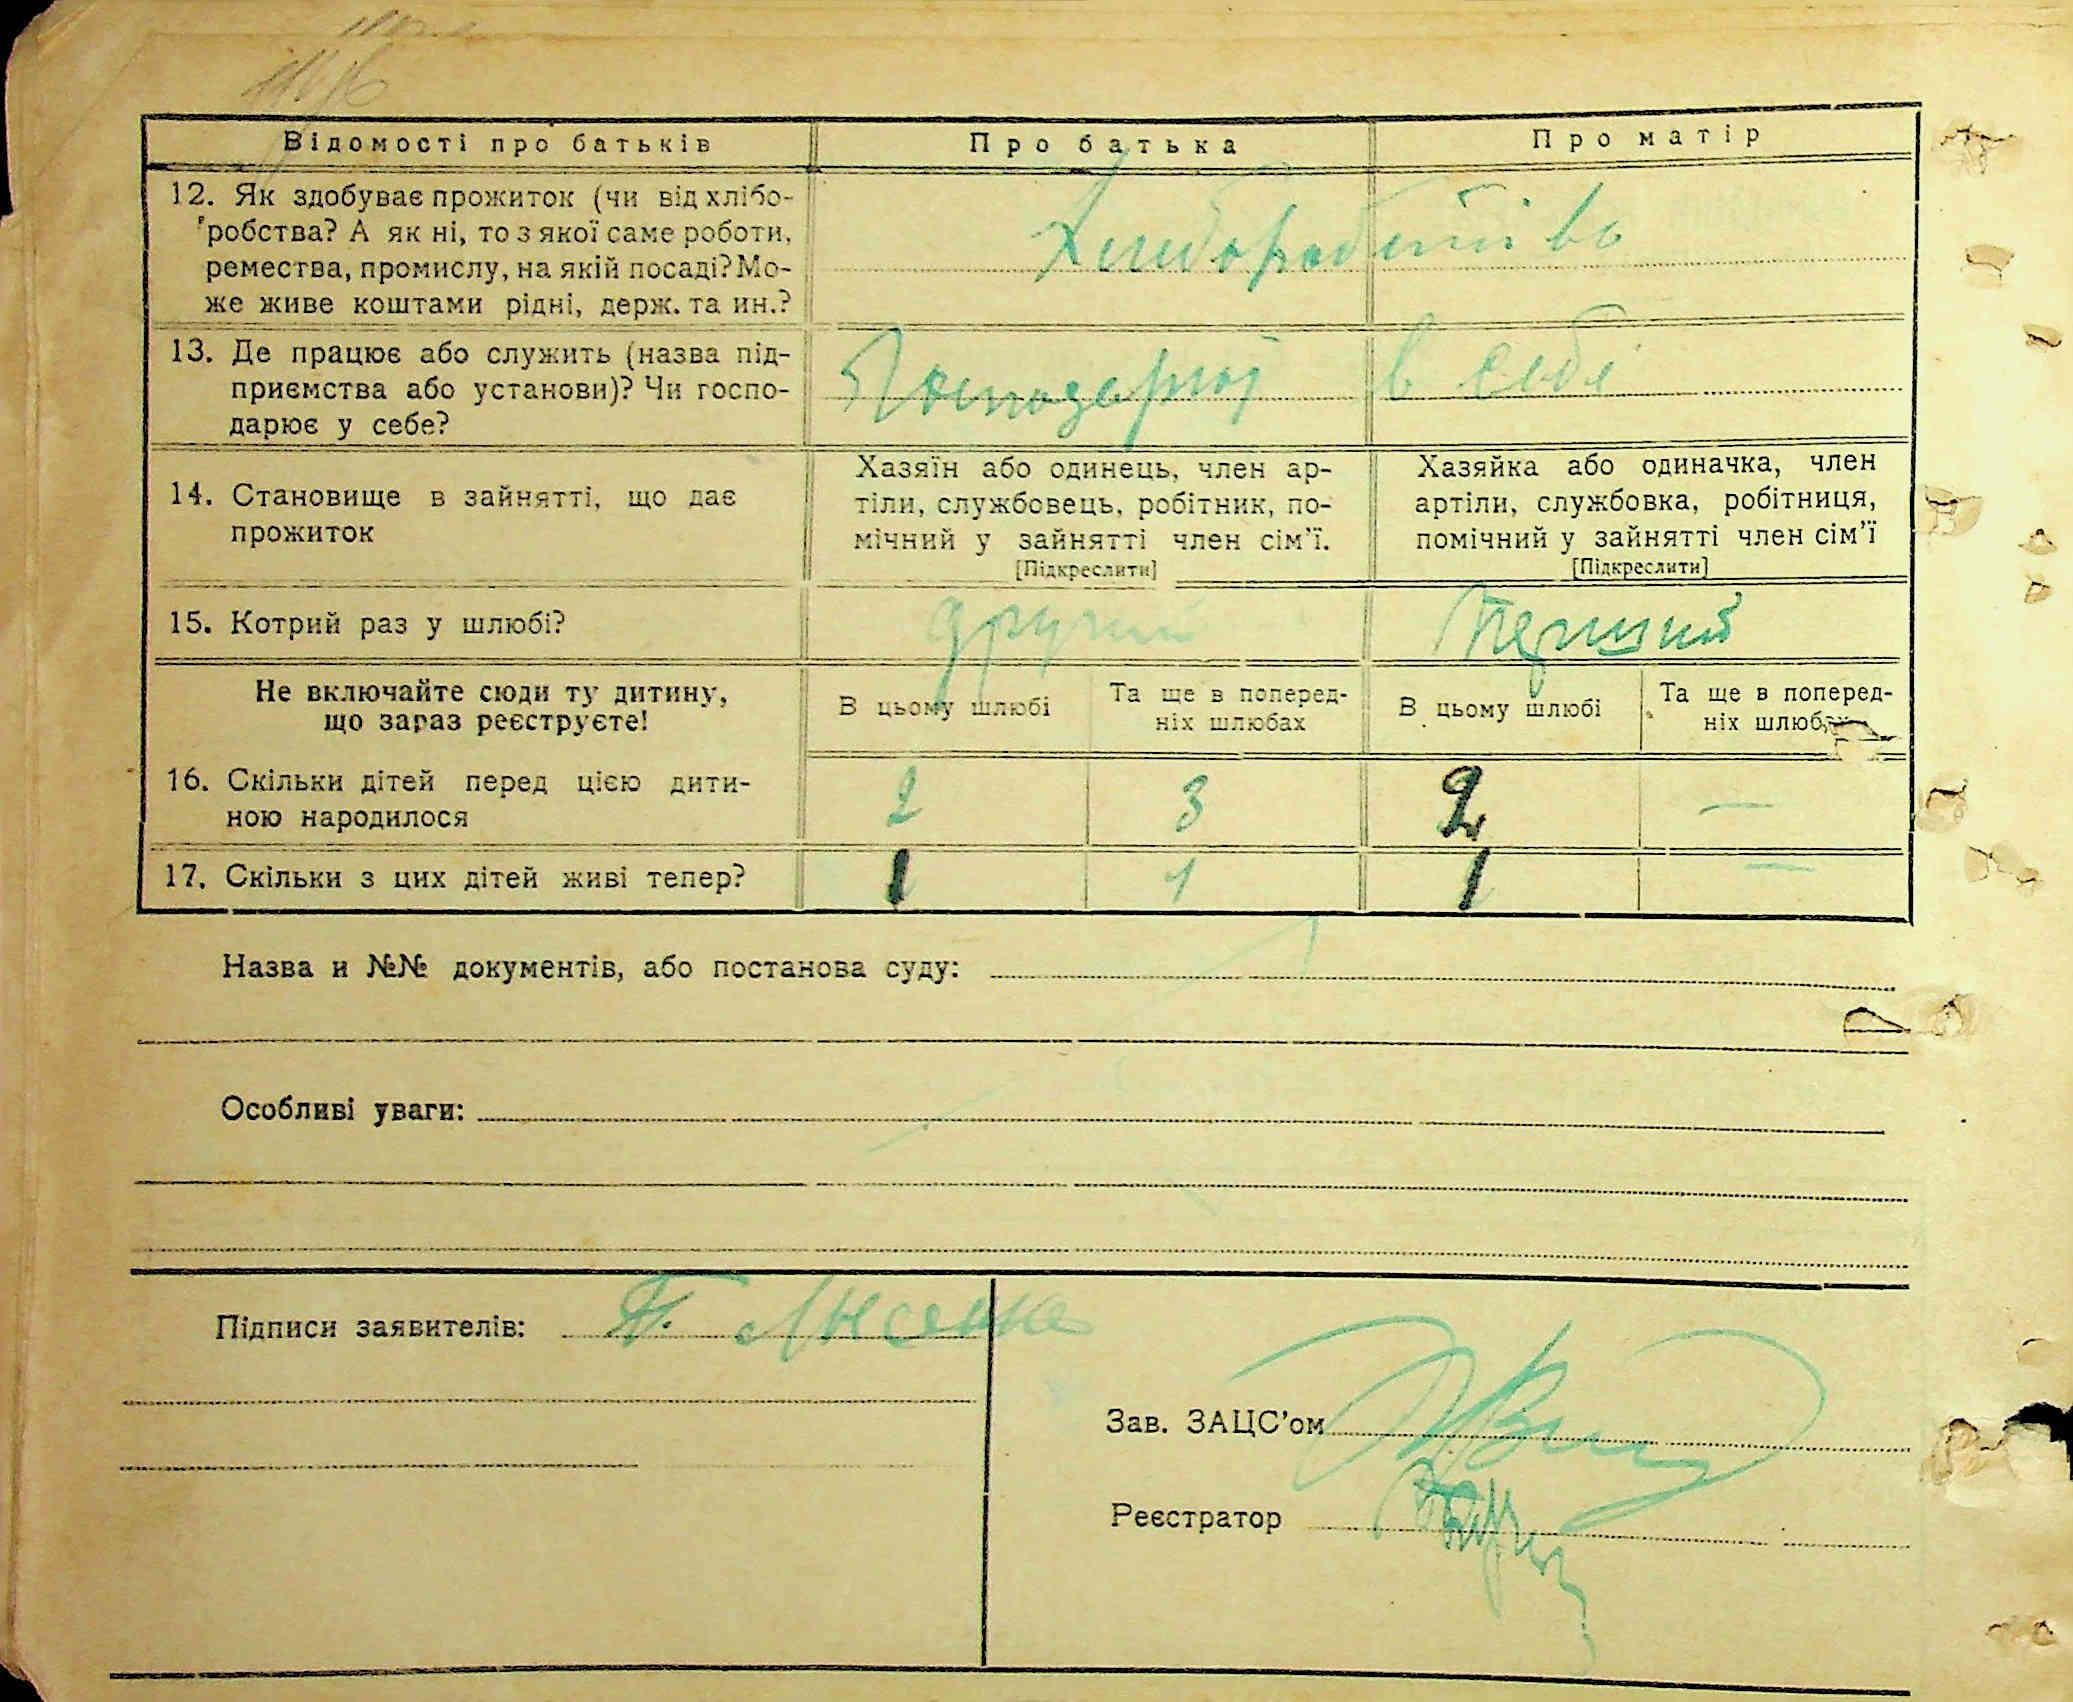 Відомості про батьків
Про батька
Про матір
12. Як здобуває прожиток (чи від хлібо-
робства? А як ні, то з якої саме роботи,
ремества, промислу, на якій посаді? Мо-
же живе коштами рідні, держ. та ин.?
13. Де працює або служить (назва під-
приємства або установи)? Чи госпо-
дарює у себе?
в себі
14. Становище в зайнятті, що дає
прожиток
Хазяїн або одинець, член ар-
тіли, службовець, робітник, по-
мічний у зайнятті член сім'ї.
[Підкреслити]
Хазяйка або одиначка, член
артіли, службовка, робітниця,
помічний у зайнятті член сім'ї
[Підкреслити]
15. Котрий раз у шлюбі?
другий
Перший
Не включайте сюди ту дитину,
що зараз реєструєте!
В цьому шлюбі
Та ще в поперед-
ніх шлюбах
В цьому шлюбі
Та ще в поперед-
ніх шлюбах
16. Скільки дітей перед цією дити-
ною народилося
2 3 2 —
17. Скільки з цих дітей живі тепер?
1 1 1 —
Назва и №№ документів, або постанова суду:
Особливі уваги:
Підписи заявителів:
Зав. ЗАЦС'ом
Реєстратор